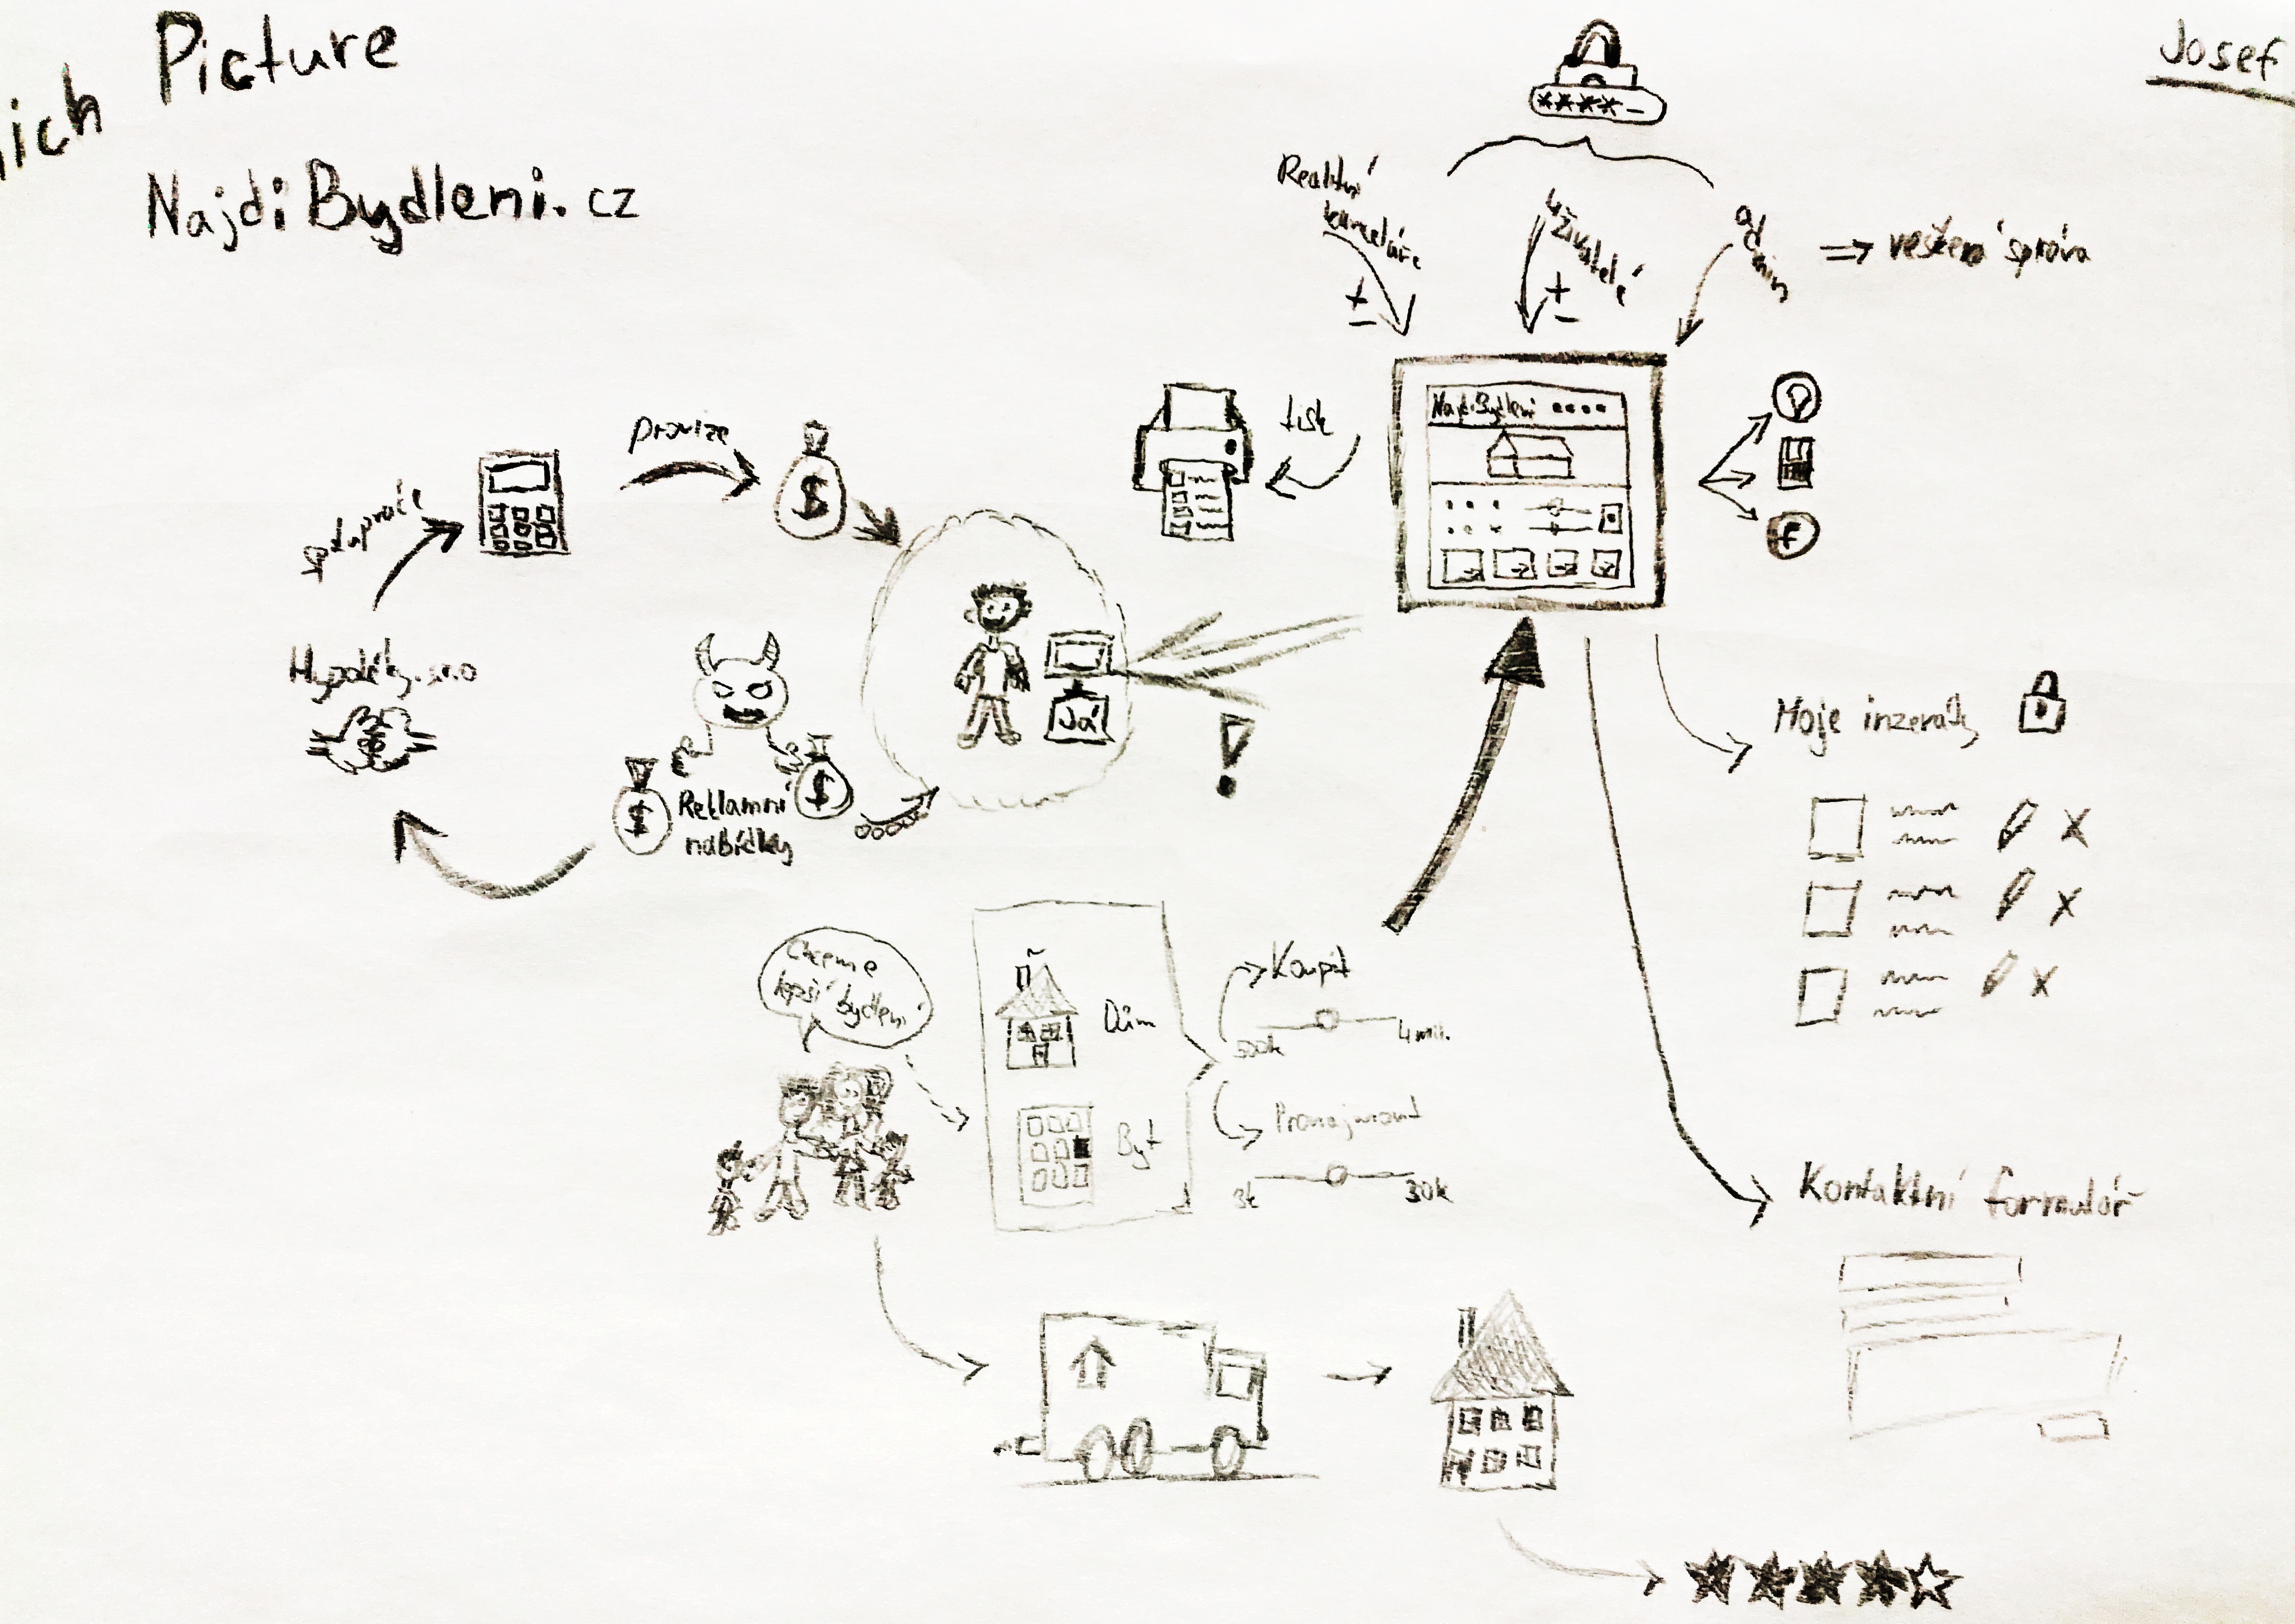 Rich Picture
NajdiBydleni.cz
Josef
****_
Realitní
kanceláře
±
uživatelé
±
admin
⇒ veškerá správa
NajdiBydleni
tisk
f
provize
$
spolupráce
Hypotéky s.r.o
$
Reklamní
nabídky
$
$
Já
!
Moje inzeráty
Chceme
lepší bydlení
Dům
Byt
Koupit
500k
4 mil.
Pronajmout
3k
30k
Kontaktní formulář